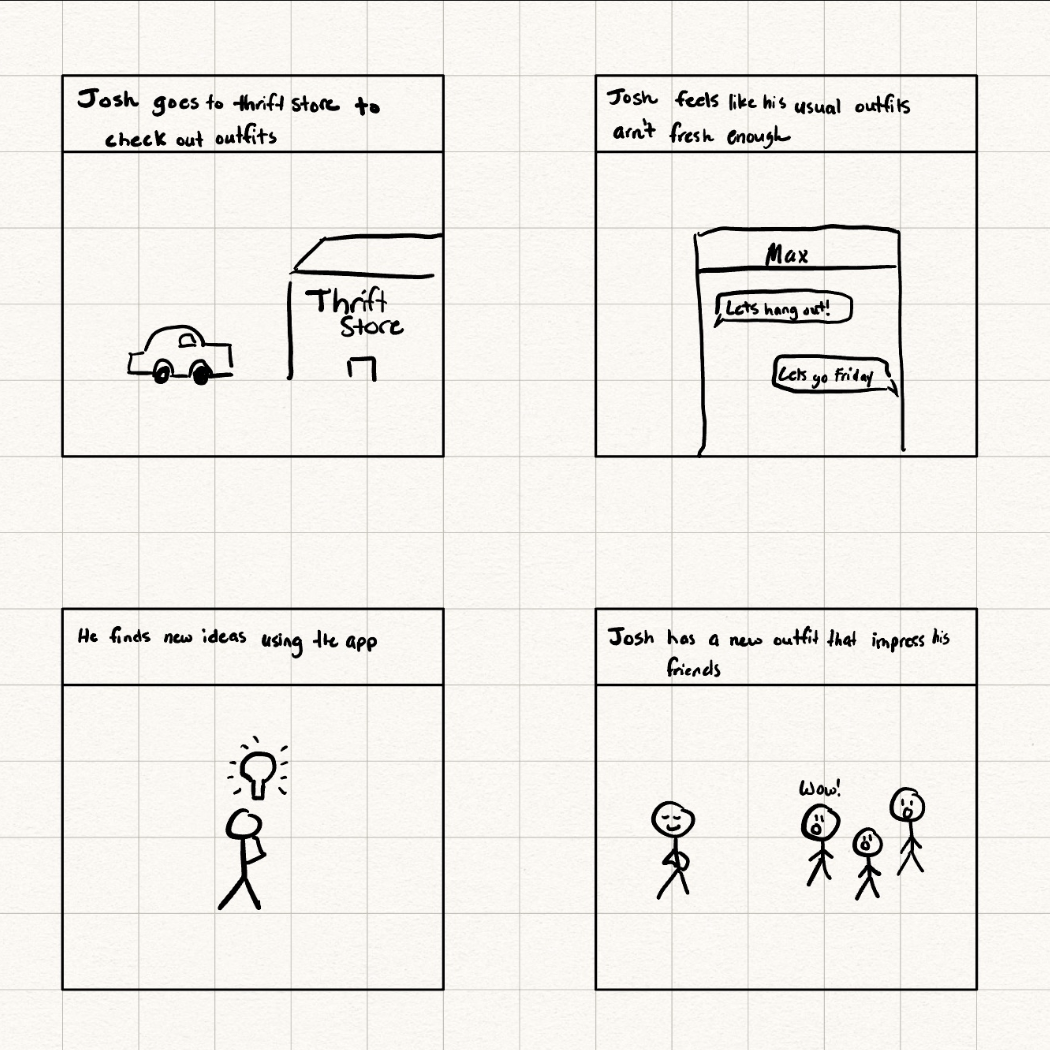 Josh goes to thrift store to
check out outfits
Thrift
Store
Josh feels like his usual outfits
arn't fresh enough
Max
Lets hang out!
Lets go Friday
He finds new ideas using the app
Josh has a new outfit that impress his
friends
Wow!